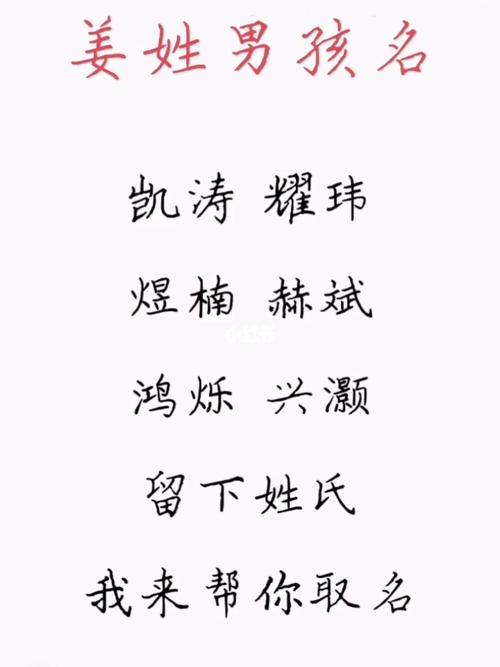 姜姓男孩名
凯涛 耀玮
煜楠 赫斌
小红书
鸿烁 兴灏
留下姓氏
我来帮你取名